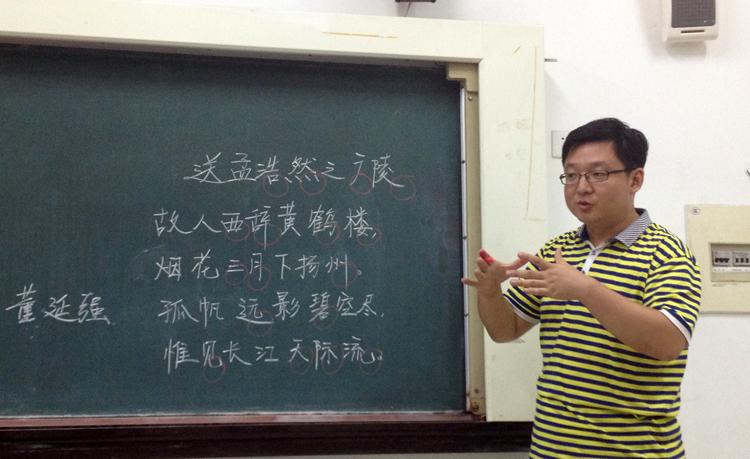 送孟浩然之广陵
故人西辞黄鹤楼，
烟花三月下扬州。
孤帆远影碧空尽，
惟见长江天际流。
董延强